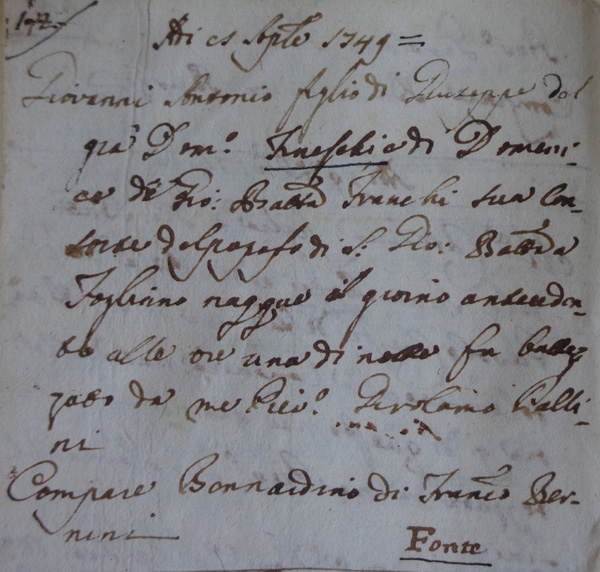 Adi es Aple 1749 =
Giovanni Antonio figlio di Giuseppe del
qia Dom.º Fineschi e di Domeni-
ca di Gio: Batta Franchi sua Con-
sorte del popolo di S. Gio: Batta a
Foglino nacque il giorno anteceden-
te alle ore una di notte fu battez
zato da me Girolamo Balli-
ni
Compare Bonnardino di Franco Ber-
nini
Fonte